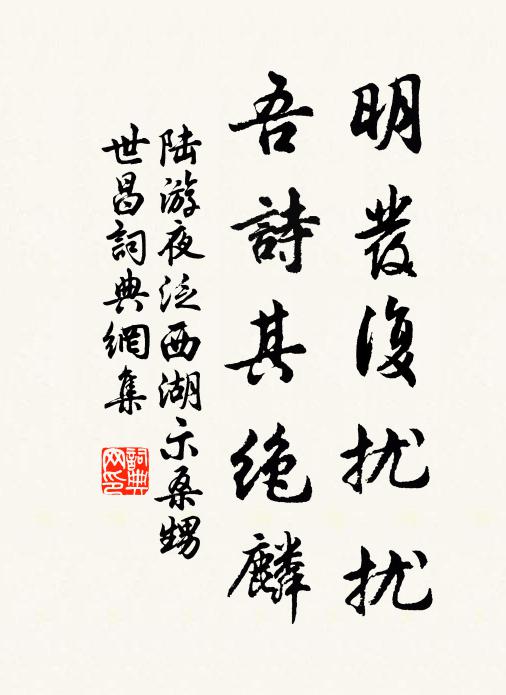 明發復扰扰
吾詩其絶麟
陆游夜泛西湖示桑甥
世昌詞典網集
詞典
网印